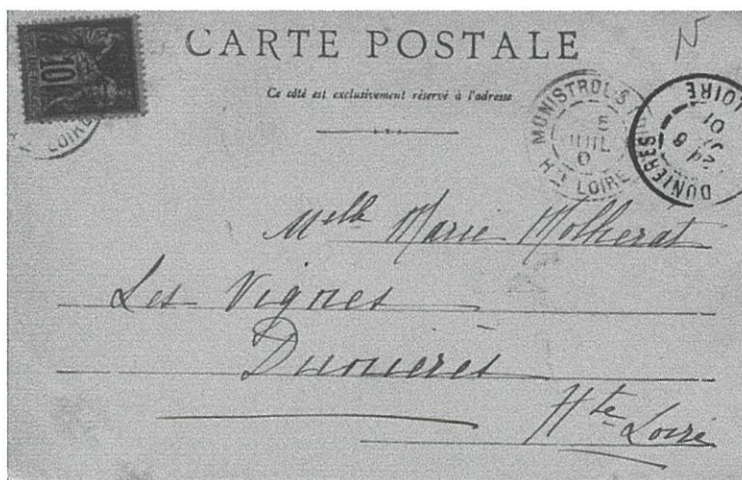 CARTE POSTALE
Ce côté est exclusivement réservé à l'adresse
10
LOIRE
MONISTROL-S
5
JUIL
0
Hte LOIRE
DUNIERES
6
01
LOIRE
N
Melle Marie Molherat
Les Vignes
Dunières
Hte Loire